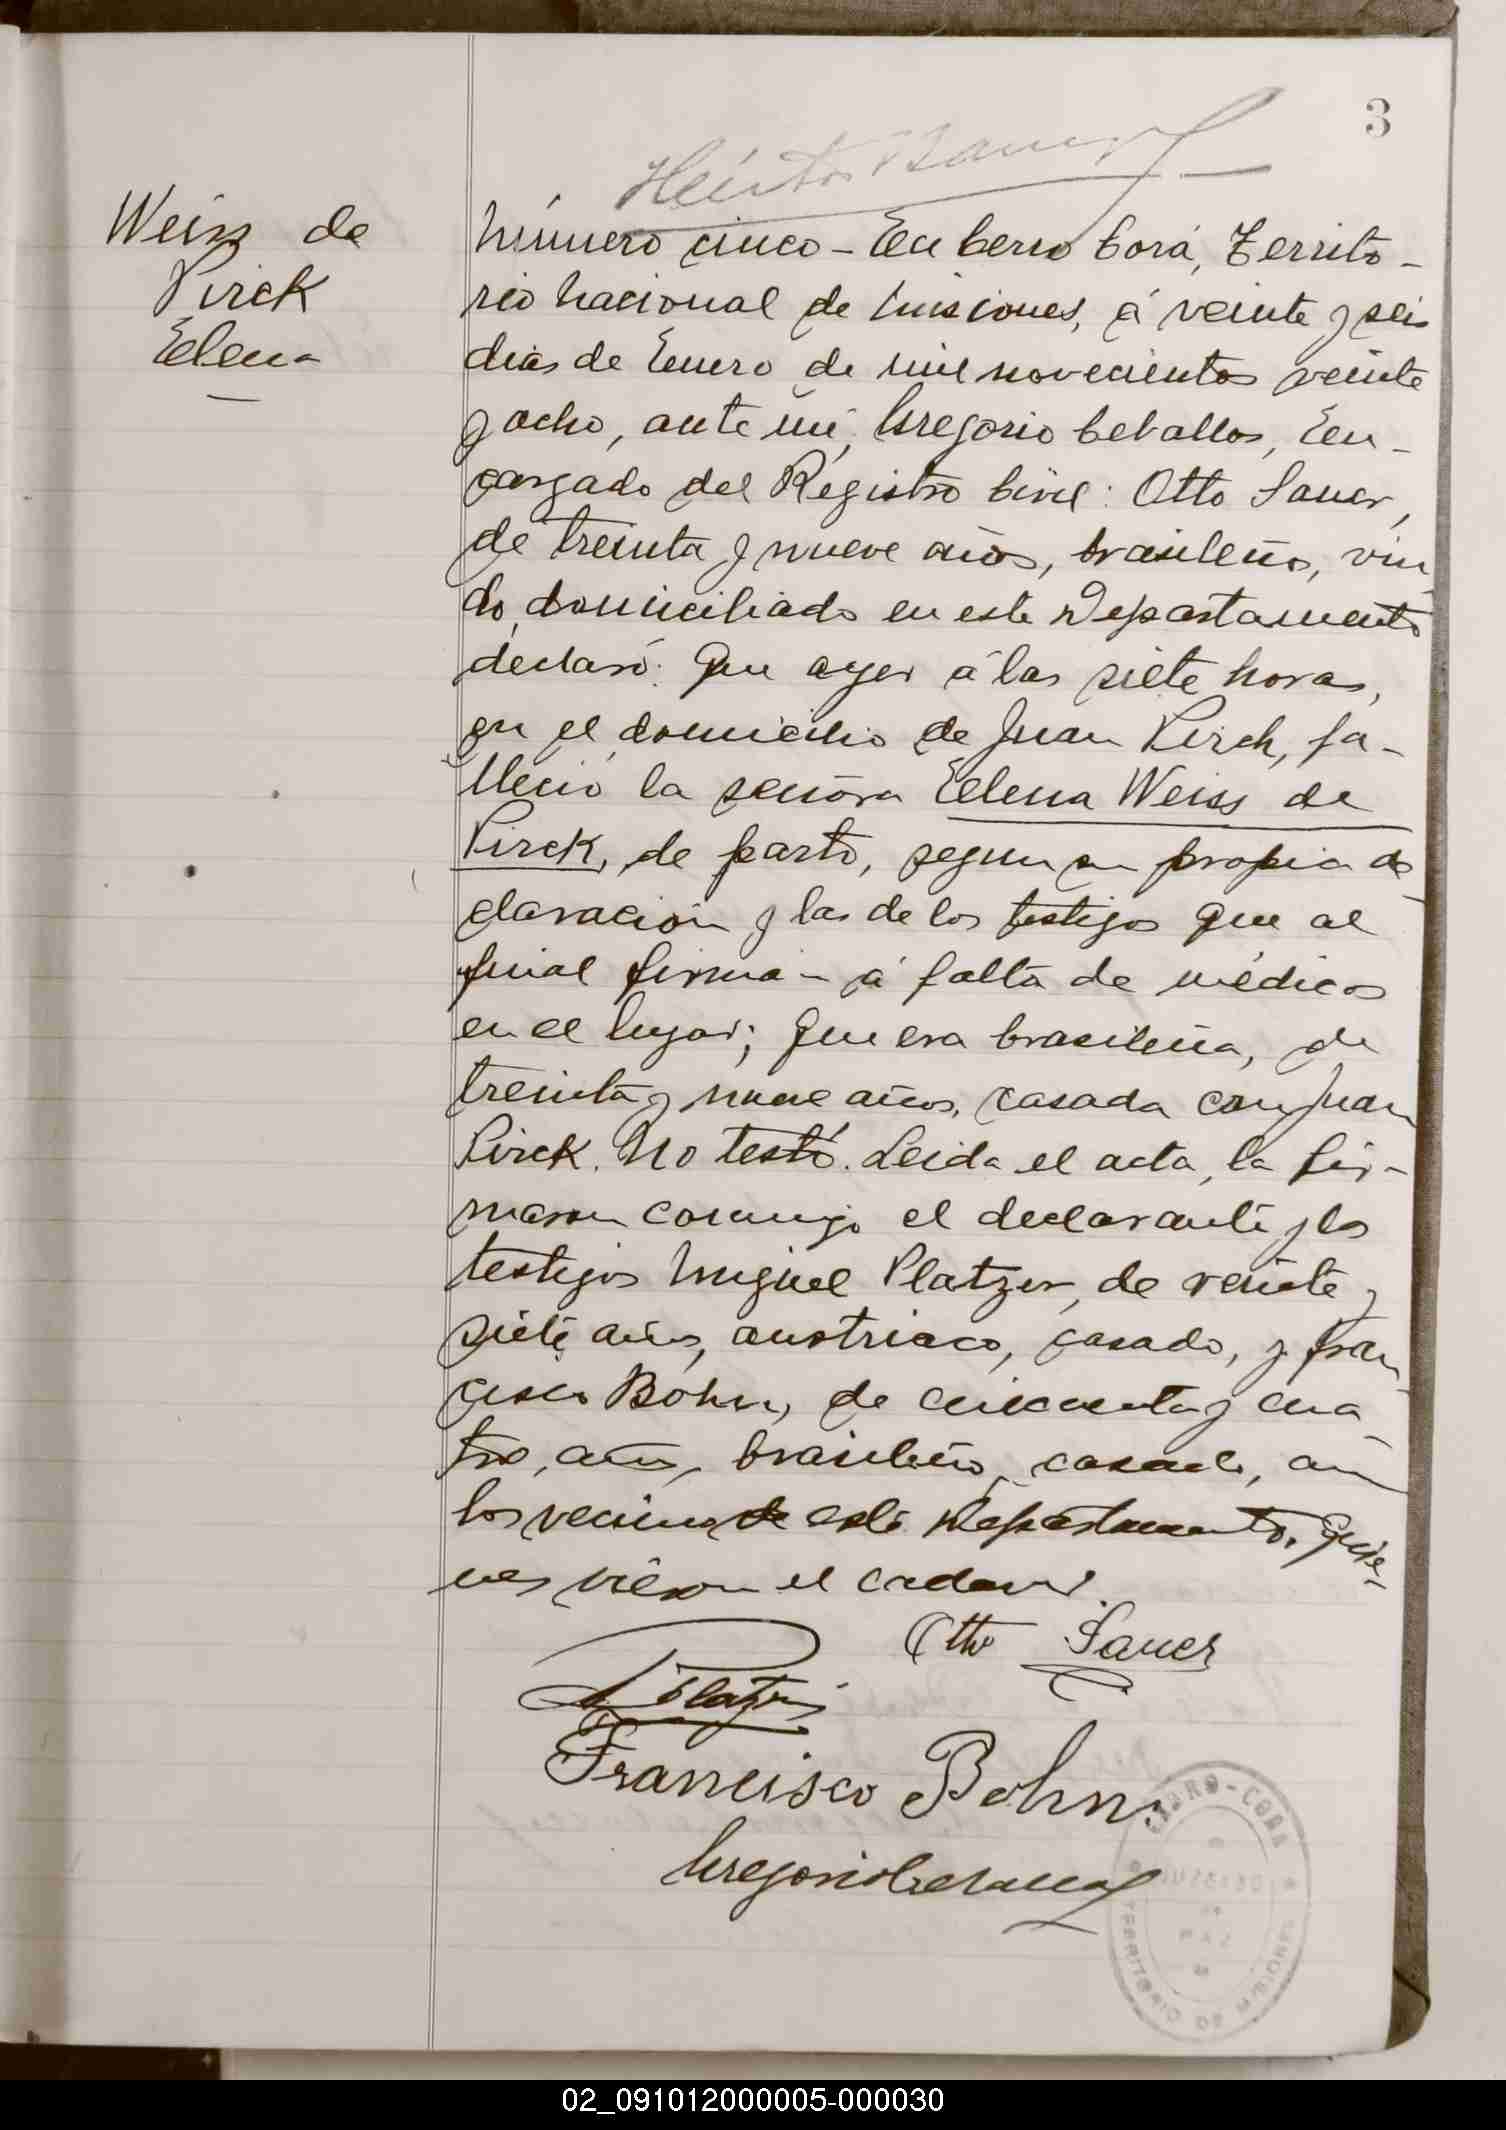 3
Weiss de
Pirck
Elena
Número cinco - En Cerro Corá, Territo-
rio Nacional de Misiones, á veinte y seis
dias de Enero de mil novecientos veinte
y ocho, ante mí, Gregorio Ceballos, En-
cargado del Registro Civil: Otto Sauer,
de treinta y nueve años, brasileño, viu-
do, domiciliado en este Departamento
declaró: Que ayer á las siete horas,
en el domicilio de Juan Pirck, fa-
lleció la señora Elena Weiss de
Pirck, de parto, segun su propia de-
claracion y las de los testigos que al
final firman á falta de médicos
en el lugar; que era brasileña, de
treinta y nueve años, casada con Juan
Pirck. No testó. Leida el acta, la fir-
maron conmigo el declarante y los
testigos Miguel Platzer, de veinte y
siete años, austriaco, casado, y Fran-
cisco Bohn, de cincuenta y cua-
tro, años, brasileño, casado, am
los vecinos de este Departamento, quie-
nes vieron el cadaver.
Otto Sauer
Platzer
Francisco Bohn
Gregorio Ceballos
CERRO-CORA
PAZ
TERRITORIO DE MISIONES
02_091012000005-000030